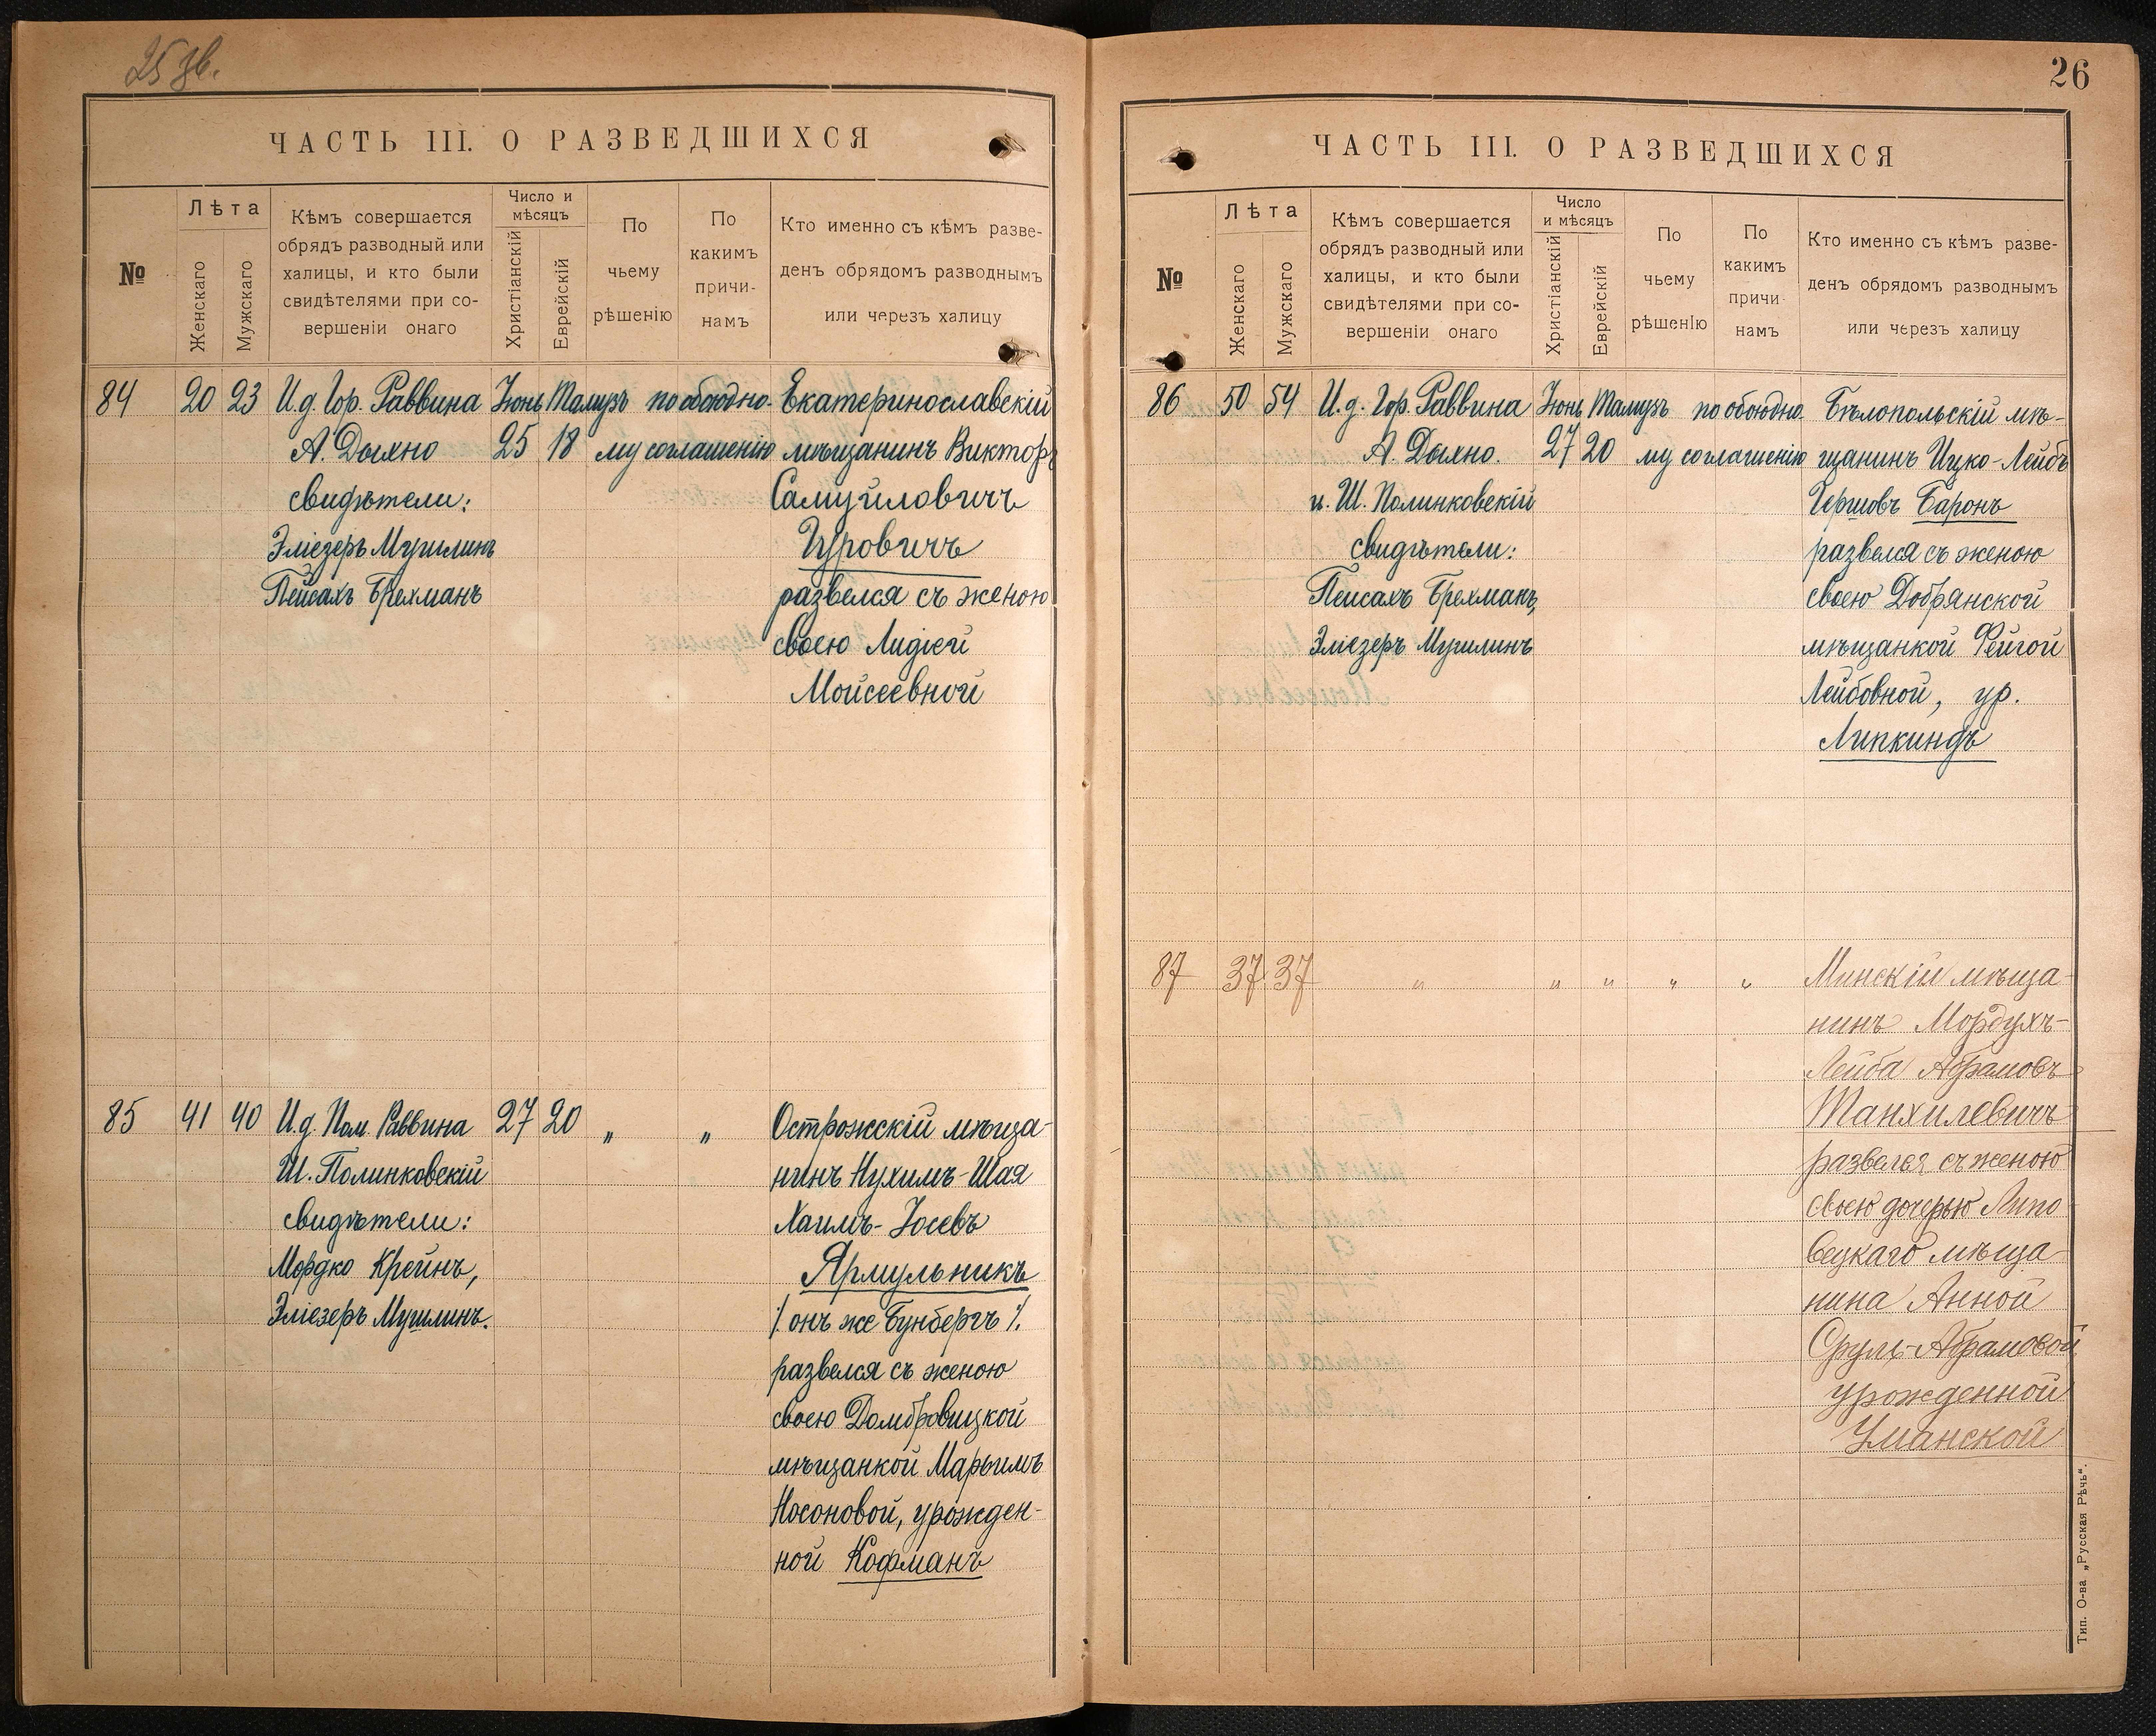 25 зв.
ЧАСТЬ III. О РАЗВЕДШИХСЯ
№
Лѣта
Женскаго
Мужскаго
Кѣмъ совершается
обрядъ разводный или
халицы, и кто были
свидѣтелями при со-
вершеніи онаго
Число и
мѣсяцъ
Христіанскій
Еврейскій
По
чьему
рѣшенію
По
какимъ
причи-
намъ
Кто именно съ кѣмъ разве-
денъ обрядомъ разводнымъ
или черезъ халицу
84 20 23 И.д. Гор. Раввина Іюнь Тамузъ по обоюдно- Екатеринославскій
А. Дыхно 25 18 му соглашенію мѣщанинъ Викторъ
свидѣтели: Самуиловичъ
Эліезеръ Мушлинъ Гуровичъ
Пейсахъ Брехманъ развелся съ женою
своею Лидіей
Моисеевной
85 41 40 И.д. Пом. Раввина 27 20 „ „ Острожскій мѣща-
Ш. Полинковскій нинъ Нухимъ-Шая
свидѣтели: Хаимъ-Іосевъ
Мордко Крейнъ, Ярмульникъ
Эліезеръ Мушлинъ. /. онъ же Бунбергъ /.
развелся съ женою
своею Домбровицкой
мѣщанкой Марьимъ
Носоновой, урожден-
ной Кофманъ
26
ЧАСТЬ III. О РАЗВЕДШИХСЯ
№
Лѣта
Женскаго
Мужскаго
Кѣмъ совершается
обрядъ разводный или
халицы, и кто были
свидѣтелями при со-
вершеніи онаго
Число
и мѣсяцъ
Христіанскій
Еврейскій
По
чьему
рѣшенію
По
какимъ
причи-
намъ
Кто именно съ кѣмъ разве-
денъ обрядомъ разводнымъ
или черезъ халицу
86 50 54 И.д. Гор. Раввина Іюнь Тамузъ по обоюдно- Бѣлопольскій мѣ-
А. Дыхно. 27 20 му соглашенію щанинъ Ицко-Лейбъ
и Ш. Полинковскій Гершовъ Баронъ
свидѣтели: развелся съ женою
Пейсахъ Брехманъ, своею Добрянской
Эліезеръ Мушлинъ мѣщанкой Фейгой
Лейбовной, ур.
Липкиндъ
87 37 37 „ „ „ „ „ Минскій мѣща-
нинъ Мордухъ-
Лейба Абрамовъ
Танхилевичъ
развелся съ женою
своею дочерью Липо-
вецкаго мѣща-
нина Анной
Сруль-Абрамовой
урожденной
Уманской
Тип. О-ва „Русская Рѣчь“.